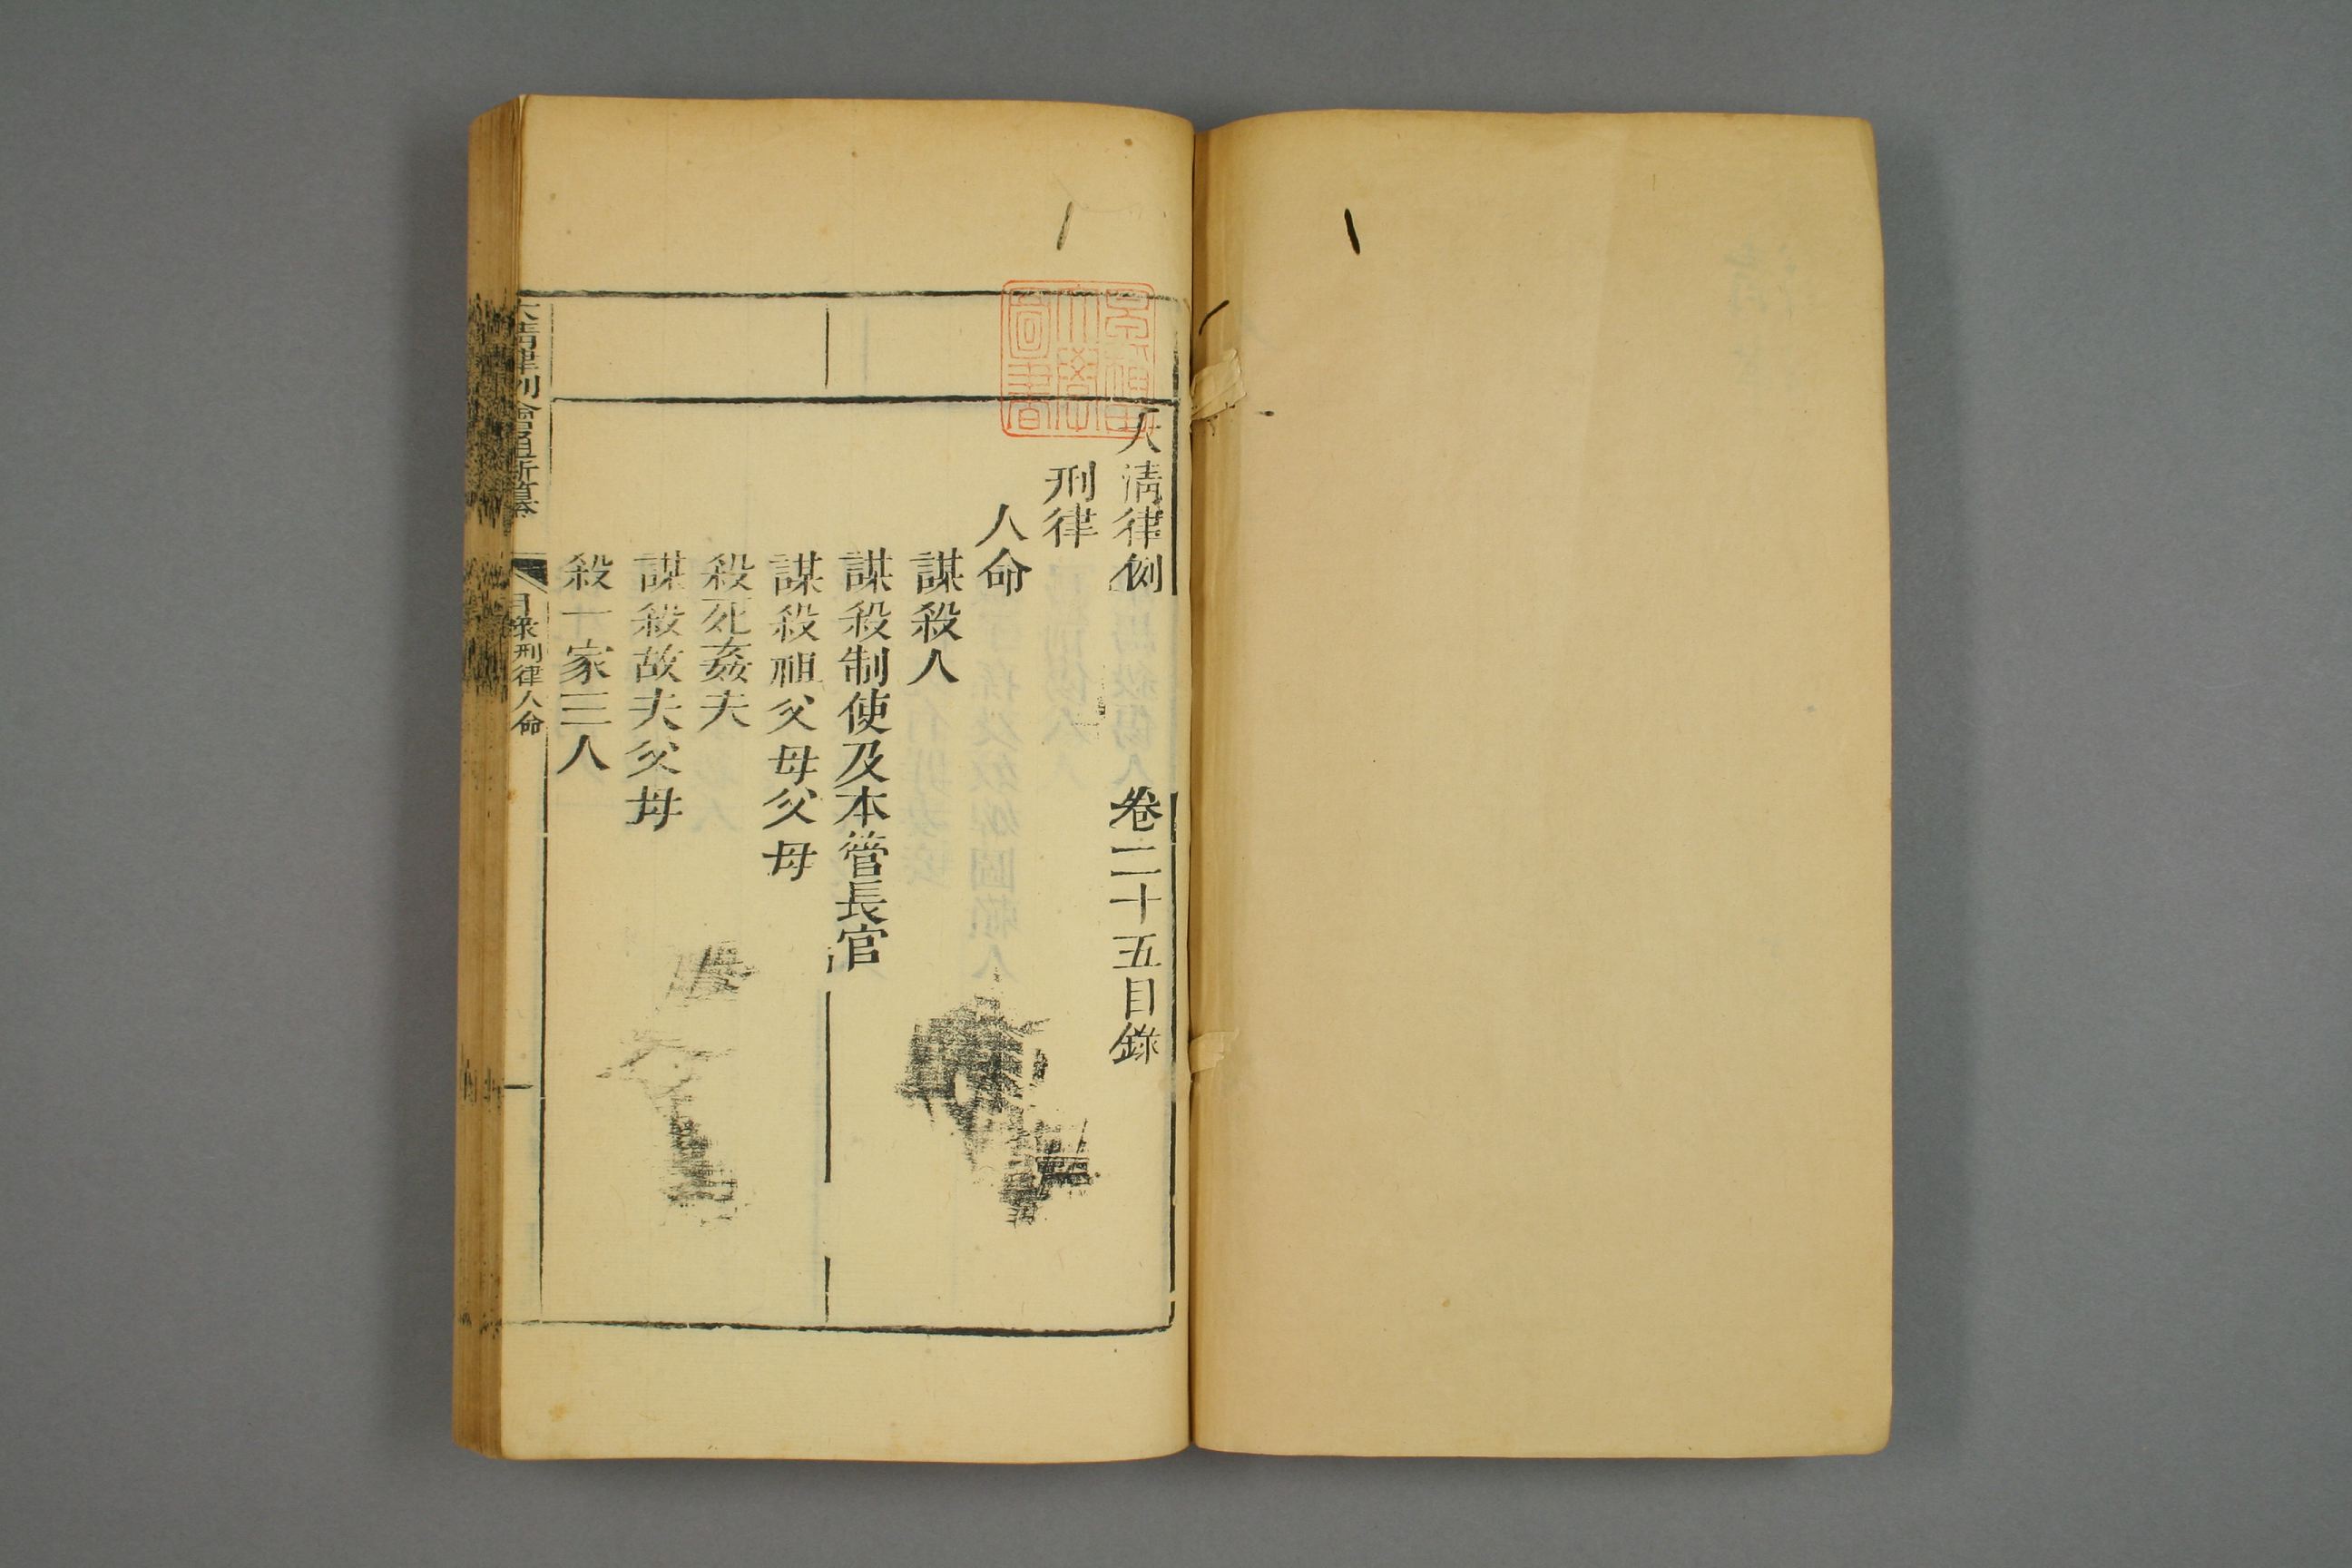 大清律例 卷二十五目錄
刑律
人命
謀殺人
謀殺制使及本管長官
謀殺祖父母父母
殺死姦夫
謀殺故夫父母
殺一家三人
大清律例會通新纂 目錄 刑律人命 一